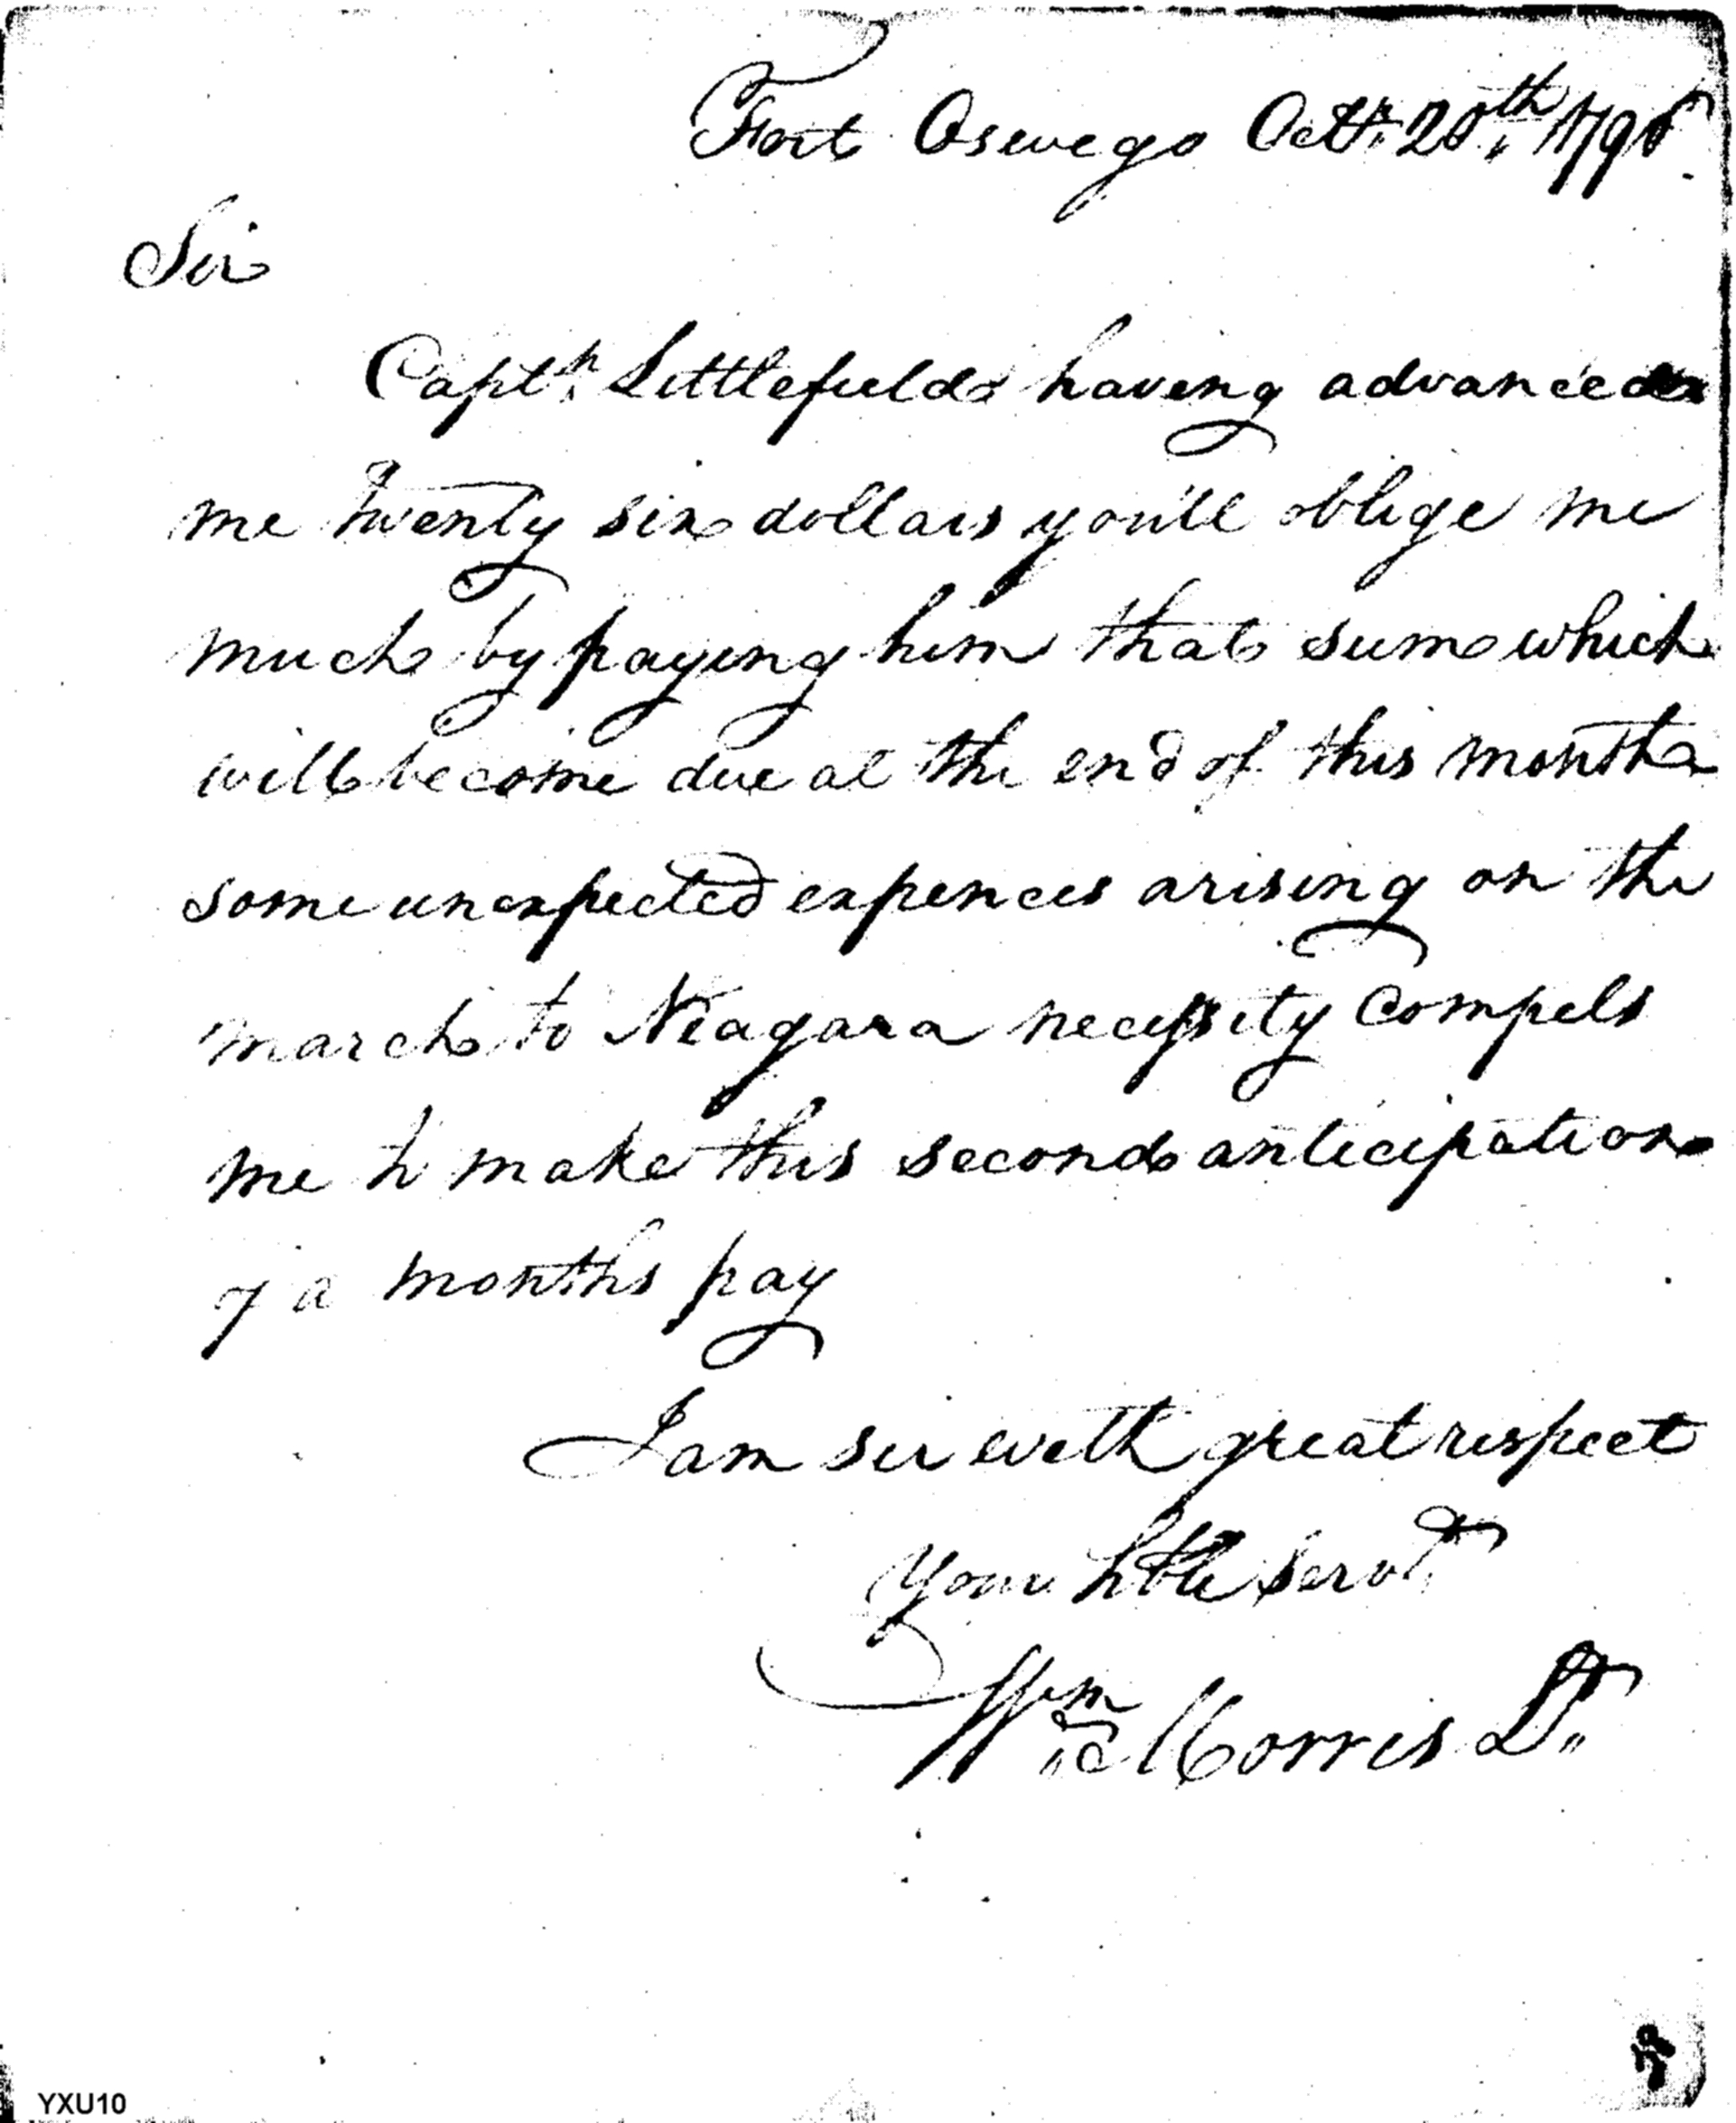 Fort Oswego Octr. 20th, 1796.
Sir
Captn. Littlefield having advanced
me twenty six dollars you'll oblige me
much by paying him that sum which
will become due at the end of this month
some unexpected expences arising on the
march to Niagara necessity compels
me to make this second anticipation
of a months pay
I am sir with great respect
Your hble servt.
Wm. Morris Lt.
YXU10